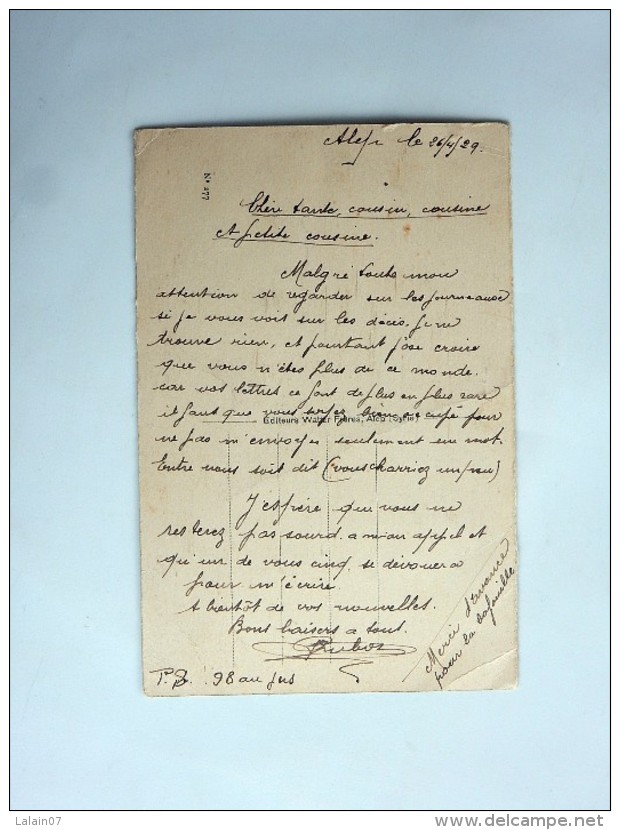 Alep le 26/4/29.
N° 277
Chère tante, cousin, cousine
et petite cousine.
Malgré toute mon
attention de regarder sur les journeaux
si je vous voit sur les décès, je ne
trouve rien, et pourtant j'ose croire
que vous n'êtes plus de ce monde.
car vos lettres ce font de plus en plus rare
il faut que vous soyez bien occupé pour
Editeurs Wattar Frères, Alep (Syrie)
ne pas m'envoyer seulement un mot.
Entre nous soit dit (vous charriez un peu)
J'espère que vous ne
resterez pas sourd a mon appel et
qu'un de vous cinq se dévouera
pour m'écrire.
A bientôt de vos nouvelles.
Bons baisers a tous.
P.S. 98 au jus
Merci d'avance
pour la bafouille
Lalain07
www.delcampe.net